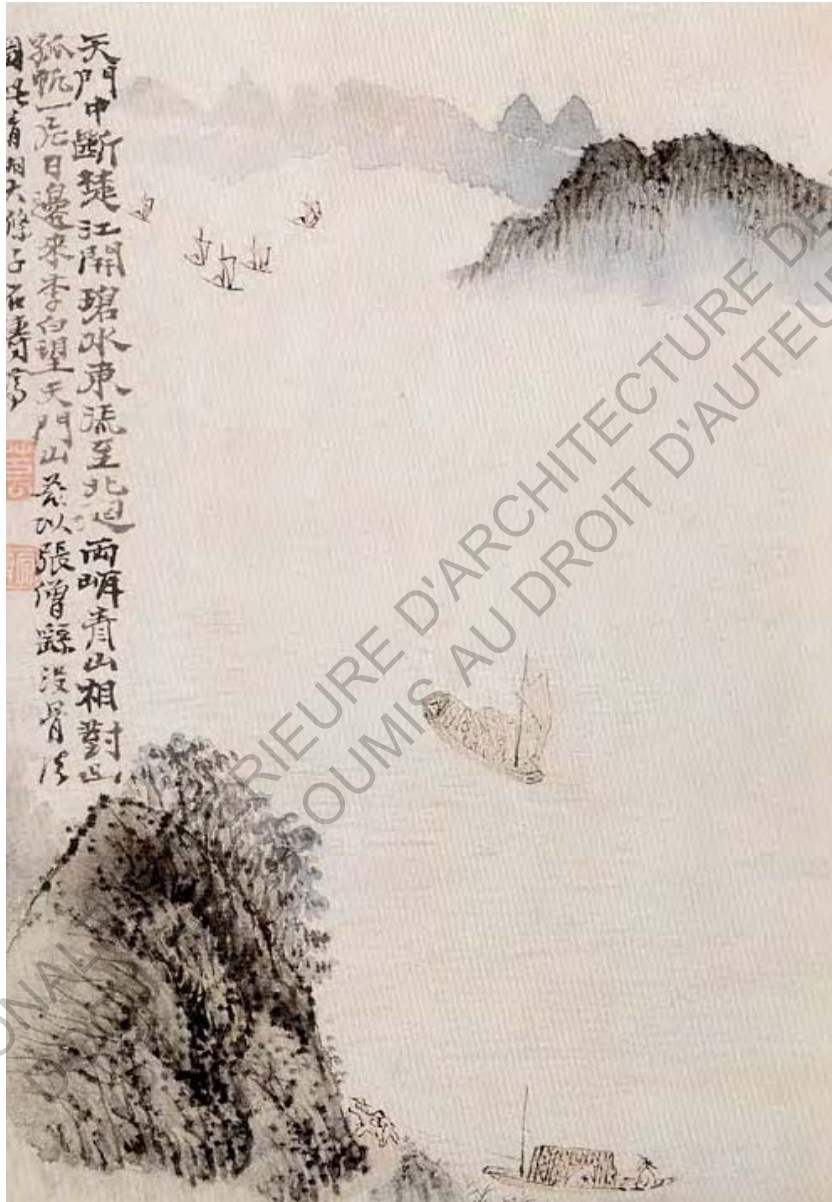 天門中斷楚江開碧水東流至北迴兩岸青山相對出
孤帆一片日邊來李白望天門山茲以張僧繇沒骨法
圖此清湘大滌子石濤
RIEURE D'ARCHITECTURE DE
SOUMIS AU DROIT D'AUTEUR
ONALE